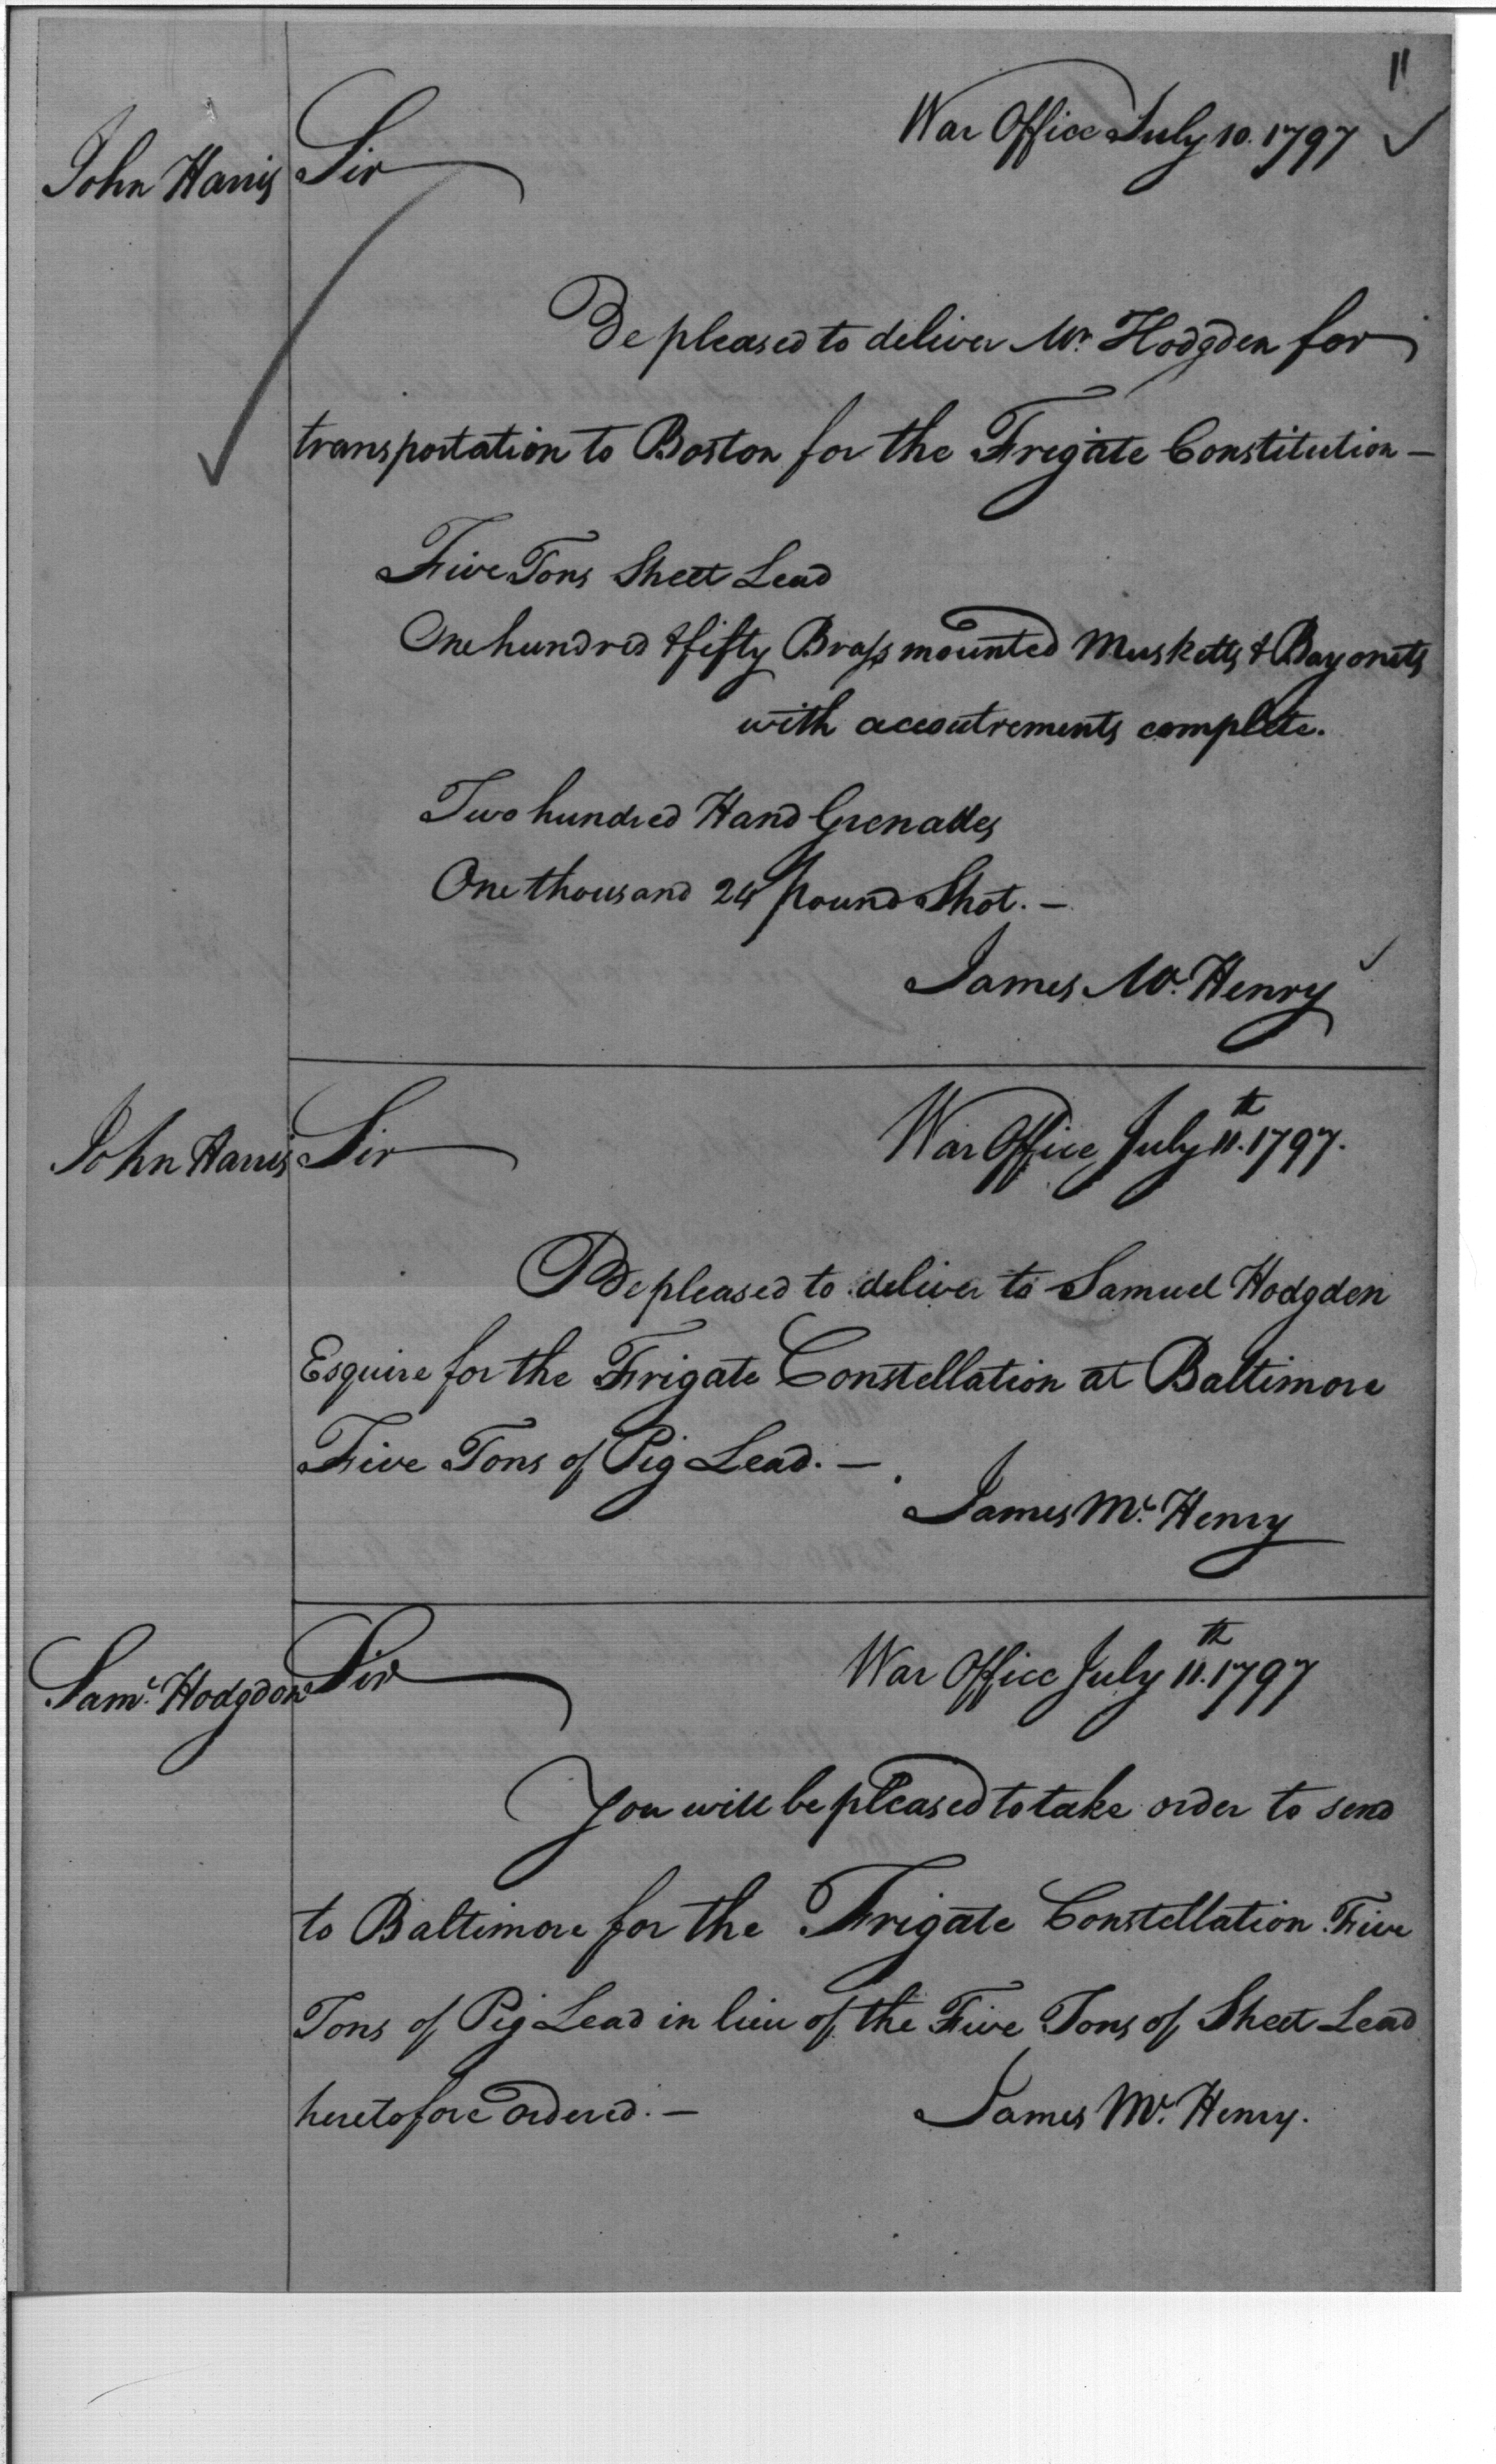 11
War Office July 10. 1797
John Harris
Sir
Be pleased to deliver Mr. Hodgden for
transportation to Boston for the Frigate Constitution —
Five Tons Sheet Lead
One hundred & fifty Brass mounted Musketts & Bayonets
with accoutrements complete.
Two hundred Hand Grenades
One thousand 24 pound Shot. —
James Mc. Henry
John Harris
Sir
War Office July 11.th 1797.
Be pleased to deliver to Samuel Hodgden
Esquire for the Frigate Constellation at Baltimore
Five Tons of Pig Lead. —
James Mc. Henry
Saml. Hodgdon
Sir
War Office July 11.th 1797
You will be pleased to take order to send
to Baltimore for the Frigate Constellation Five
Tons of Pig Lead in lieu of the Five Tons of Sheet Lead
heretofore ordered. —
James Mc. Henry.